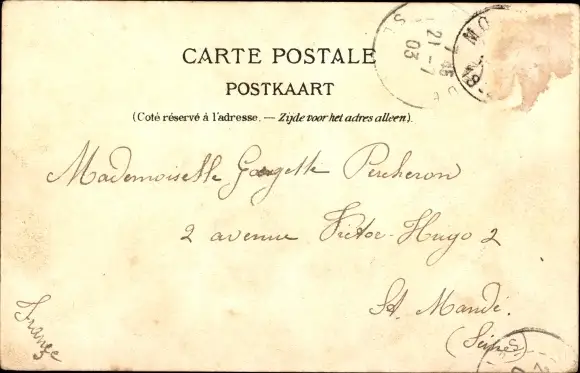 CARTE POSTALE
POSTKAART
(Coté réservé à l'adresse. — Zijde voor het adres alleen).
Mademoiselle Georgette Percheron
2 avenue Victor-Hugo 2
St. Mandé.
(Seine)
France
MO
7
21-7
03